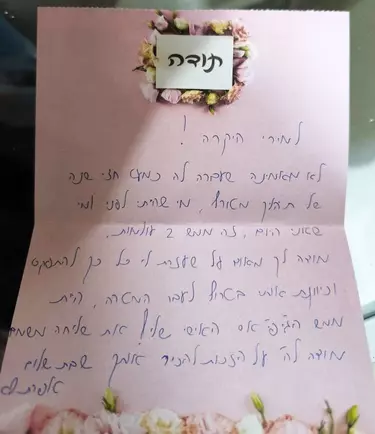 תודה
למירי היקרה!
לא מאמינה שעברה לה כמעט חצי שנה
של תהליך מטורף, מי שהייתי לפני ומי
שאני היום, זה ממש 2 עולמות.
מודה לך מאוד על שעזרת לי כל כך להתמקד
וכיוונת אותי בשביל לעבר המטרה, היית
ממש הג'י פי אס האישי שלי! את שליחה משמים
מודה לה' על הזכות להכיר אותך שבת שלום